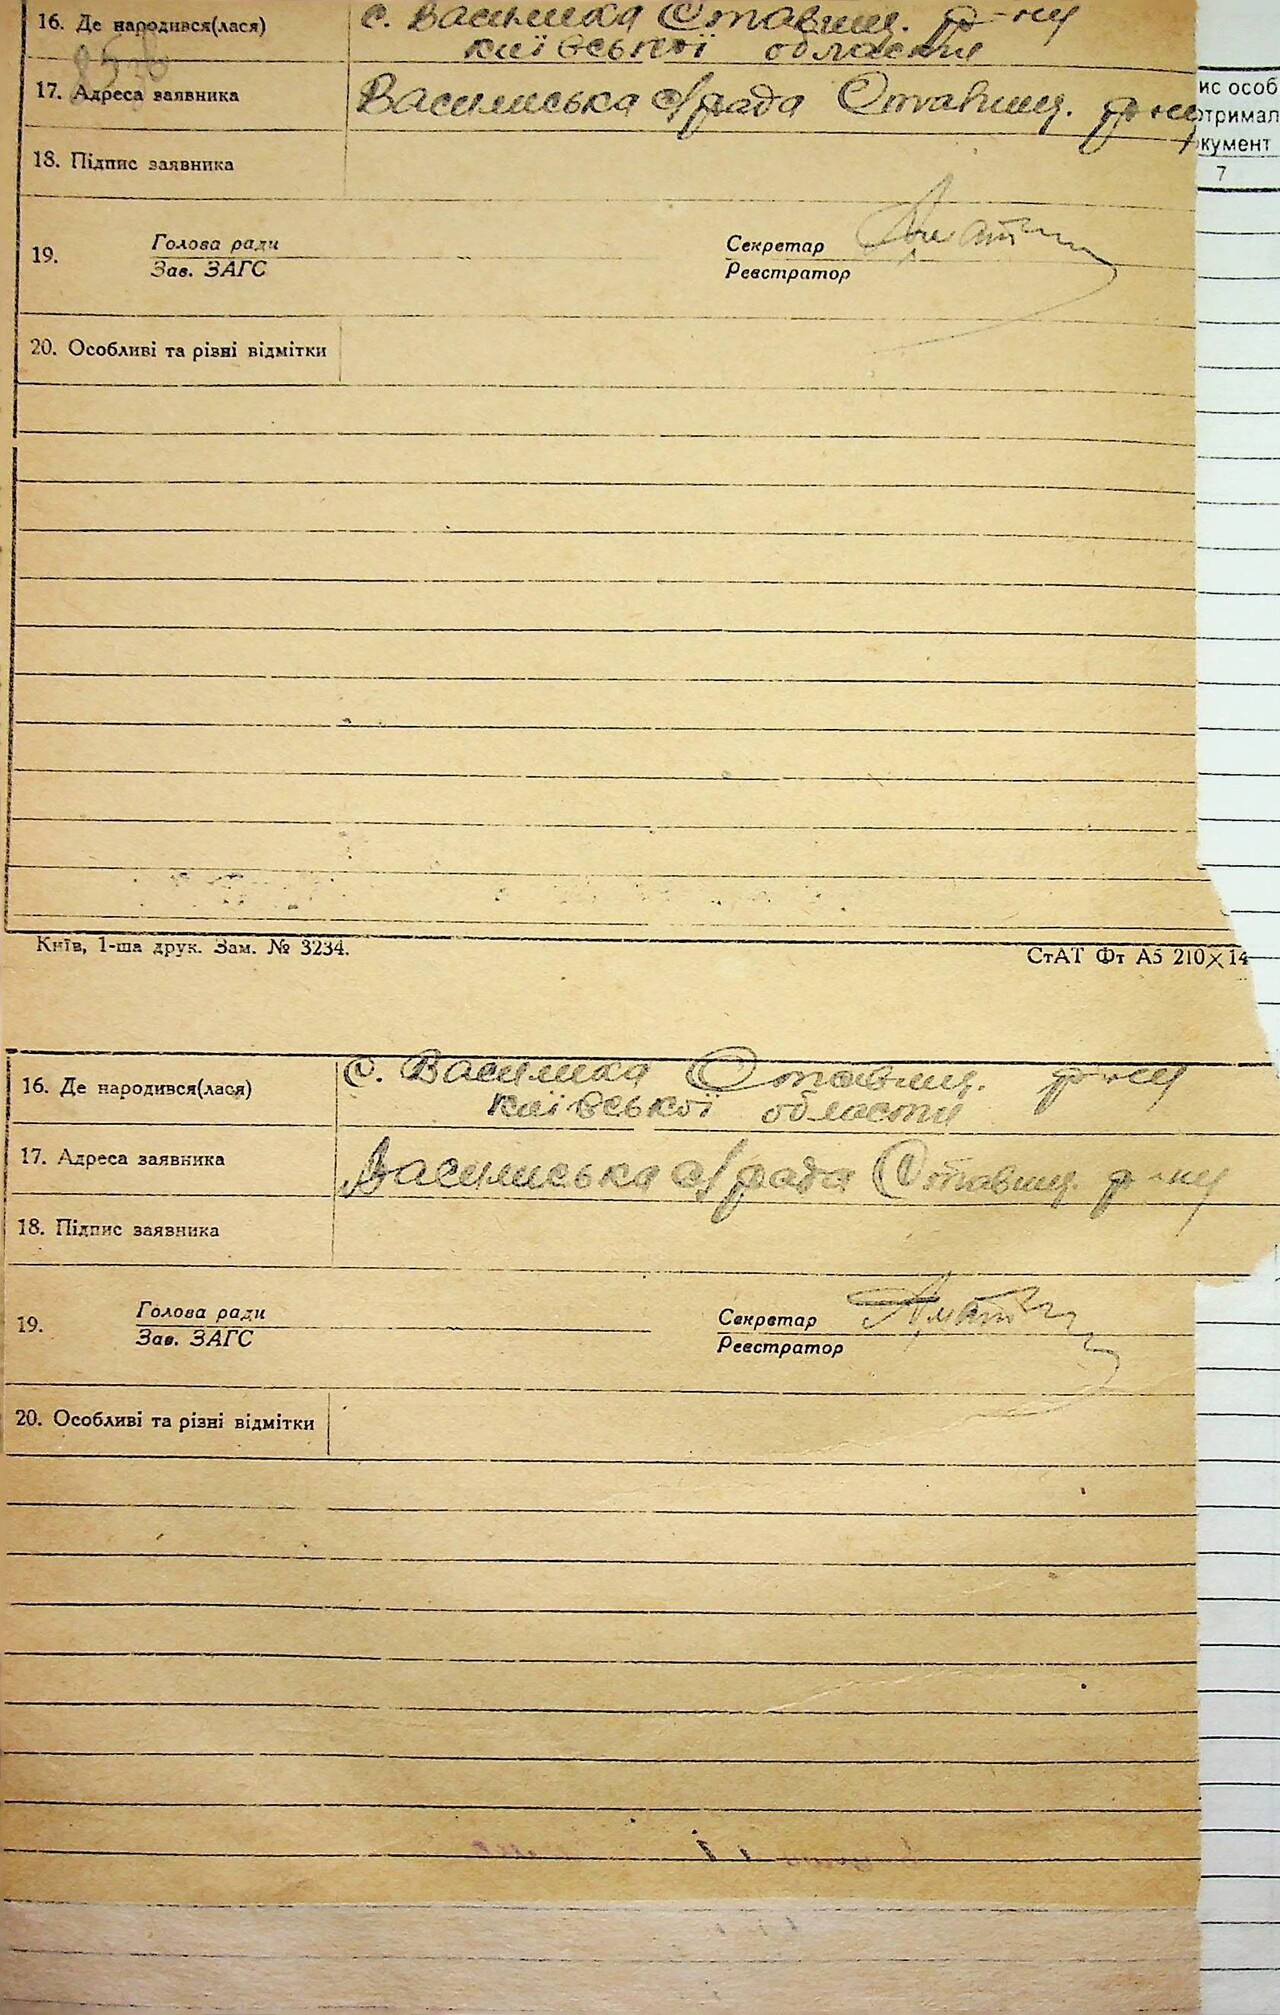 16. Де народився(лася) с. Василиха Ставищ. р-ну
київської области
17. Адреса заявника Василиська с/рада Ставищ. р-ну
18. Підпис заявника
19. Голова ради Секретар
Зав. ЗАГС Реєстратор
20. Особливі та різні відмітки
ис особ
отримал
кумент
7
Київ, 1-ша друк. Зам. № 3234. СтАТ Фт А5 210×14
16. Де народився(лася) с. Василиха Ставищ. р-ну
київської области
17. Адреса заявника Василиська с/рада Ставищ. р-ну
18. Підпис заявника
19. Голова ради Секретар
Зав. ЗАГС Реєстратор
20. Особливі та різні відмітки